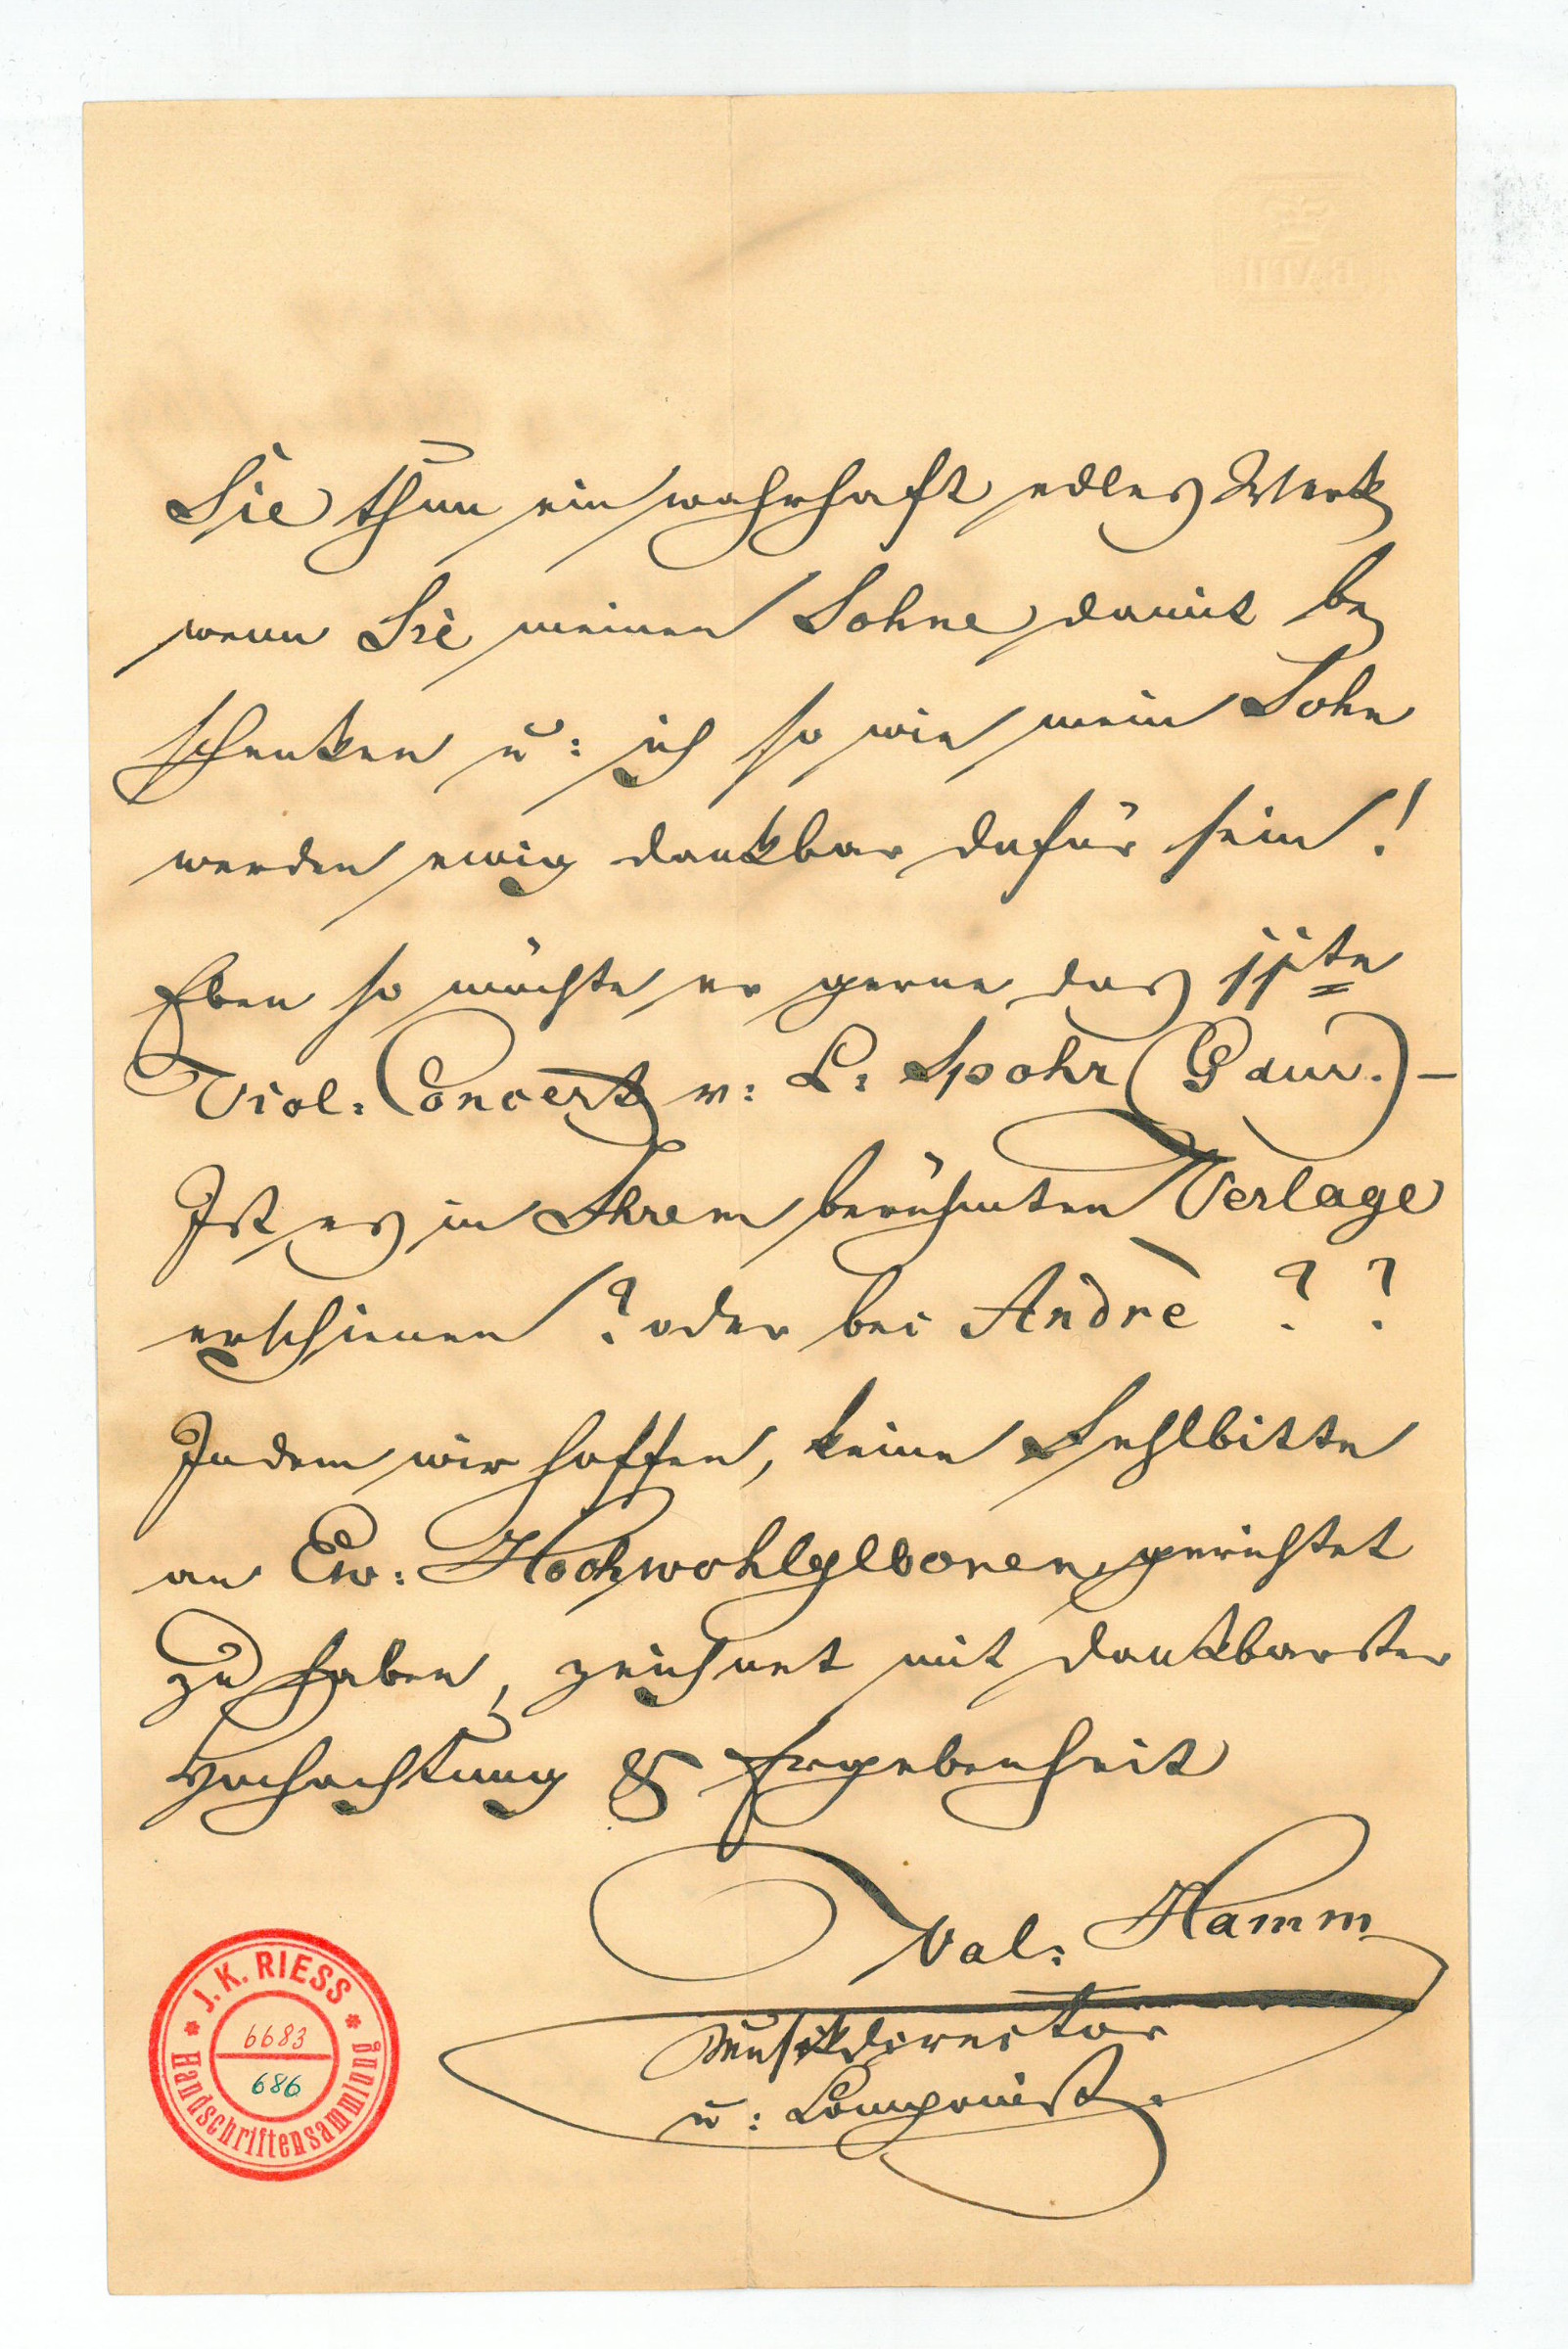 Sie thun ein wahrhaft edles Werk
wenn Sie meinen Sohne damit be
schenken u: ich so wie mein Sohn
werden ewig dankbar dafür sein!
Eben so möchte er gerne das 11te
Viol. Concert v: L: Spohr (G dur.) –
Ist es in Ihrem berühmten Verlage
erschienen? oder bei Andrè ? ?
Indem wir hoffen, keine Fehlbitte
an Ew: Hochwohlgeboren gerichtet
zu haben, zeichnet mit dankbarster
Hochachtung & Ergebenheit
Val: Hamm
Musikdirector
u: Componist.
J. K. RIESS
6683
686
Handschriftensammlung
BATH